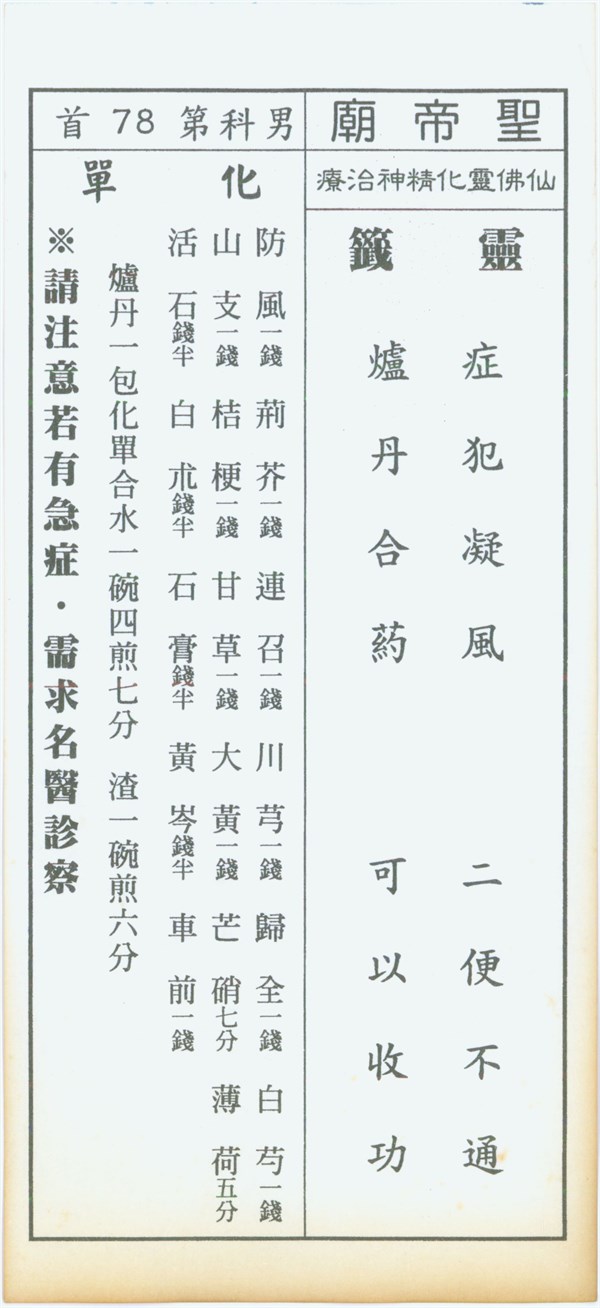 聖帝廟
仙佛靈化精神治療
靈籤
症犯凝風　二便不通
爐丹合药　可以收功
男科第78首
化單
防風一錢 荊芥一錢 連召一錢 川芎一錢 歸全一錢 白芍一錢
山支一錢 桔梗一錢 甘草一錢 大黃一錢 芒硝七分 薄荷五分
活石錢半 白朮錢半 石膏錢半 黃岑錢半 車前一錢
爐丹一包化單合水一碗四煎七分 渣一碗煎六分
※請注意若有急症・需求名醫診察